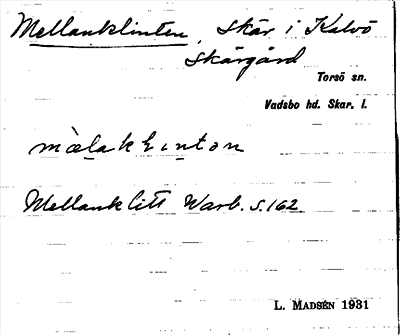 Mellanklinten, skär i Kalvö
skärgård
Torsö sn.
Vadsbo hd. Skar. l.
Mellanklitt Warb. s. 162
L. MADSÉN 1931